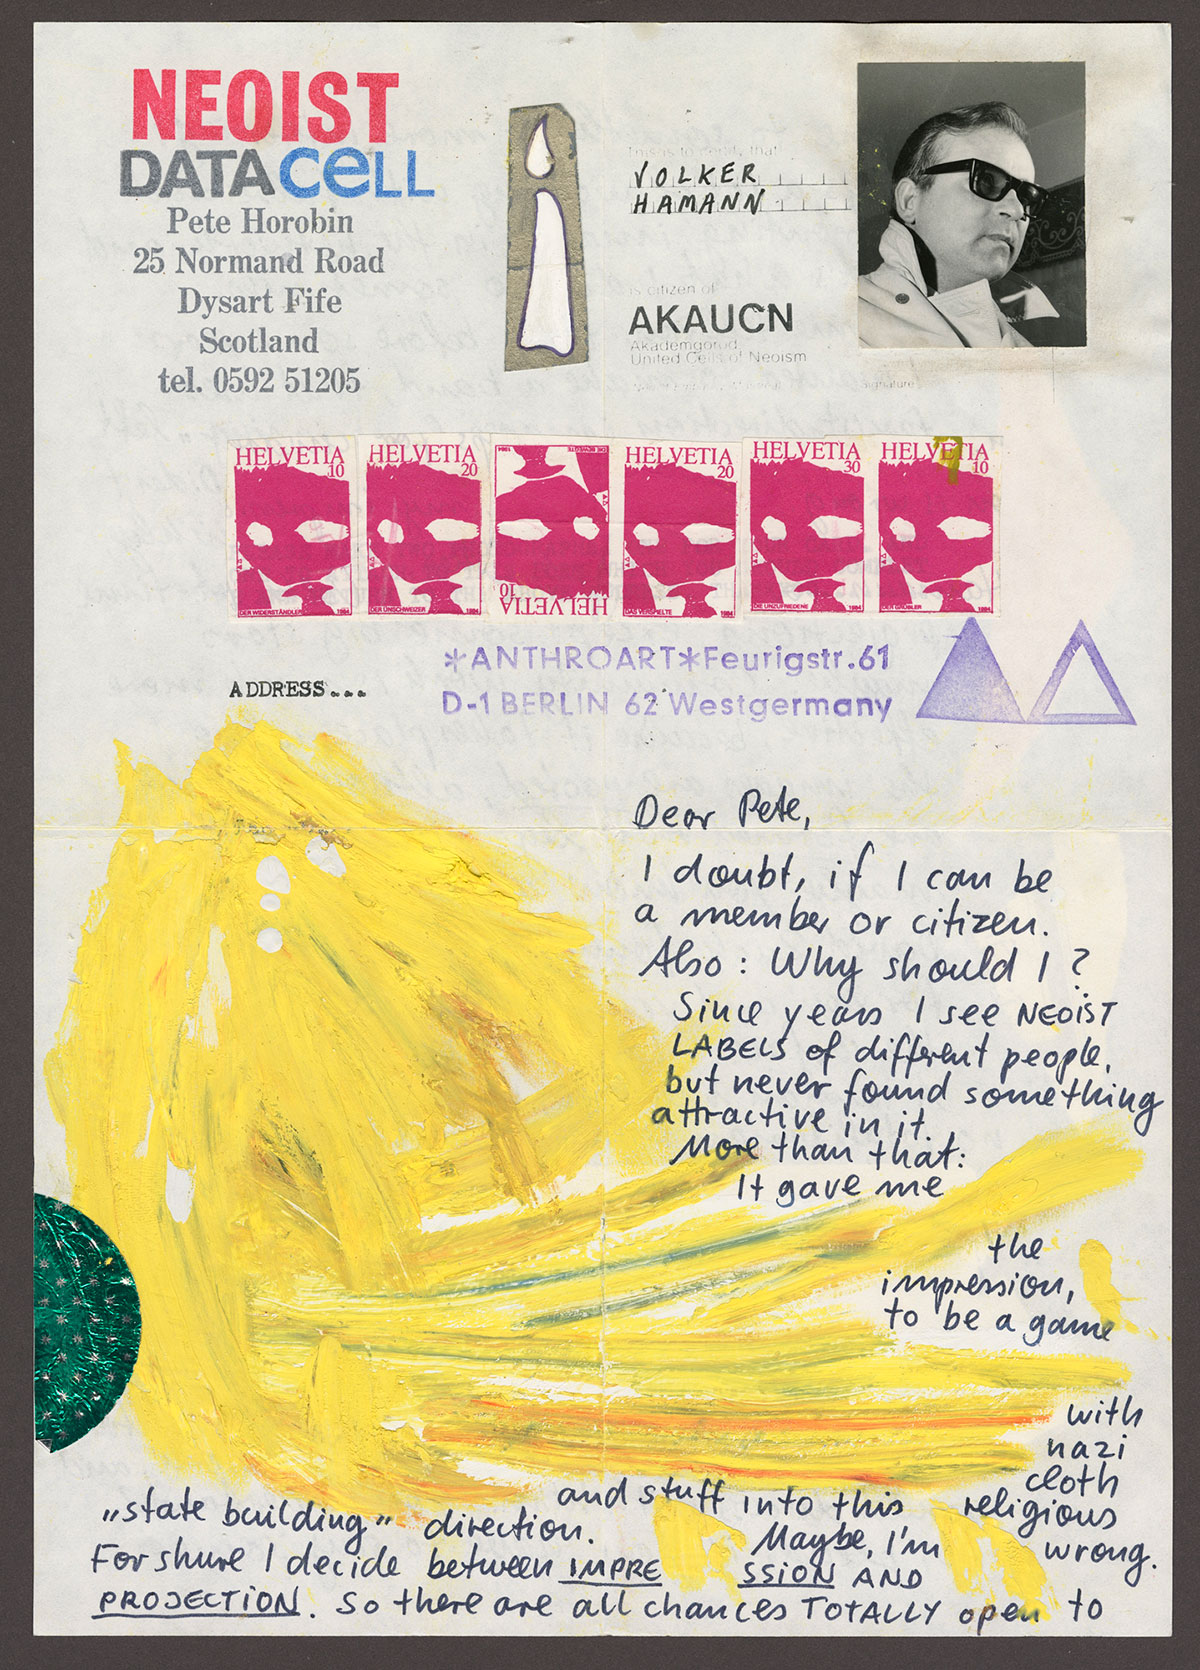 NEOIST
DATA CELL
Pete Horobin
25 Normand Road
Dysart Fife
Scotland
tel. 0592 51205
this is to certify that
VOLKER
HAMANN
is citizen of
AKAUCN
Akademgorod
United Cells of Neoism
signature
HELVETIA
10
DER WIDERSTÄNDLER 1984
HELVETIA
20
DER UNSCHWEIZER 1984
HELVETIA
10
1984
HELVETIA
20
1984
HELVETIA
30
DIE UNZUFRIEDENE 1984
HELVETIA
10
DER GRÜBLER 1984
*ANTHROART*Feurigstr.61
D-1 BERLIN 62 Westgermany
ADDRESS...
Dear Pete,
I doubt, if I can be
a member or citizen.
Also: Why should I?
Since years I see NEOIST
LABELS of different people,
but never found something
attractive in it.
More than that:
It gave me
the
impression,
to be a game
with
nazi
cloth
religious
and stuff into this
"state building" direction.
Maybe, I'm
wrong.
For shure I decide between IMPRE SSION AND
PROJECTION. So there are all chances TOTALLY open to